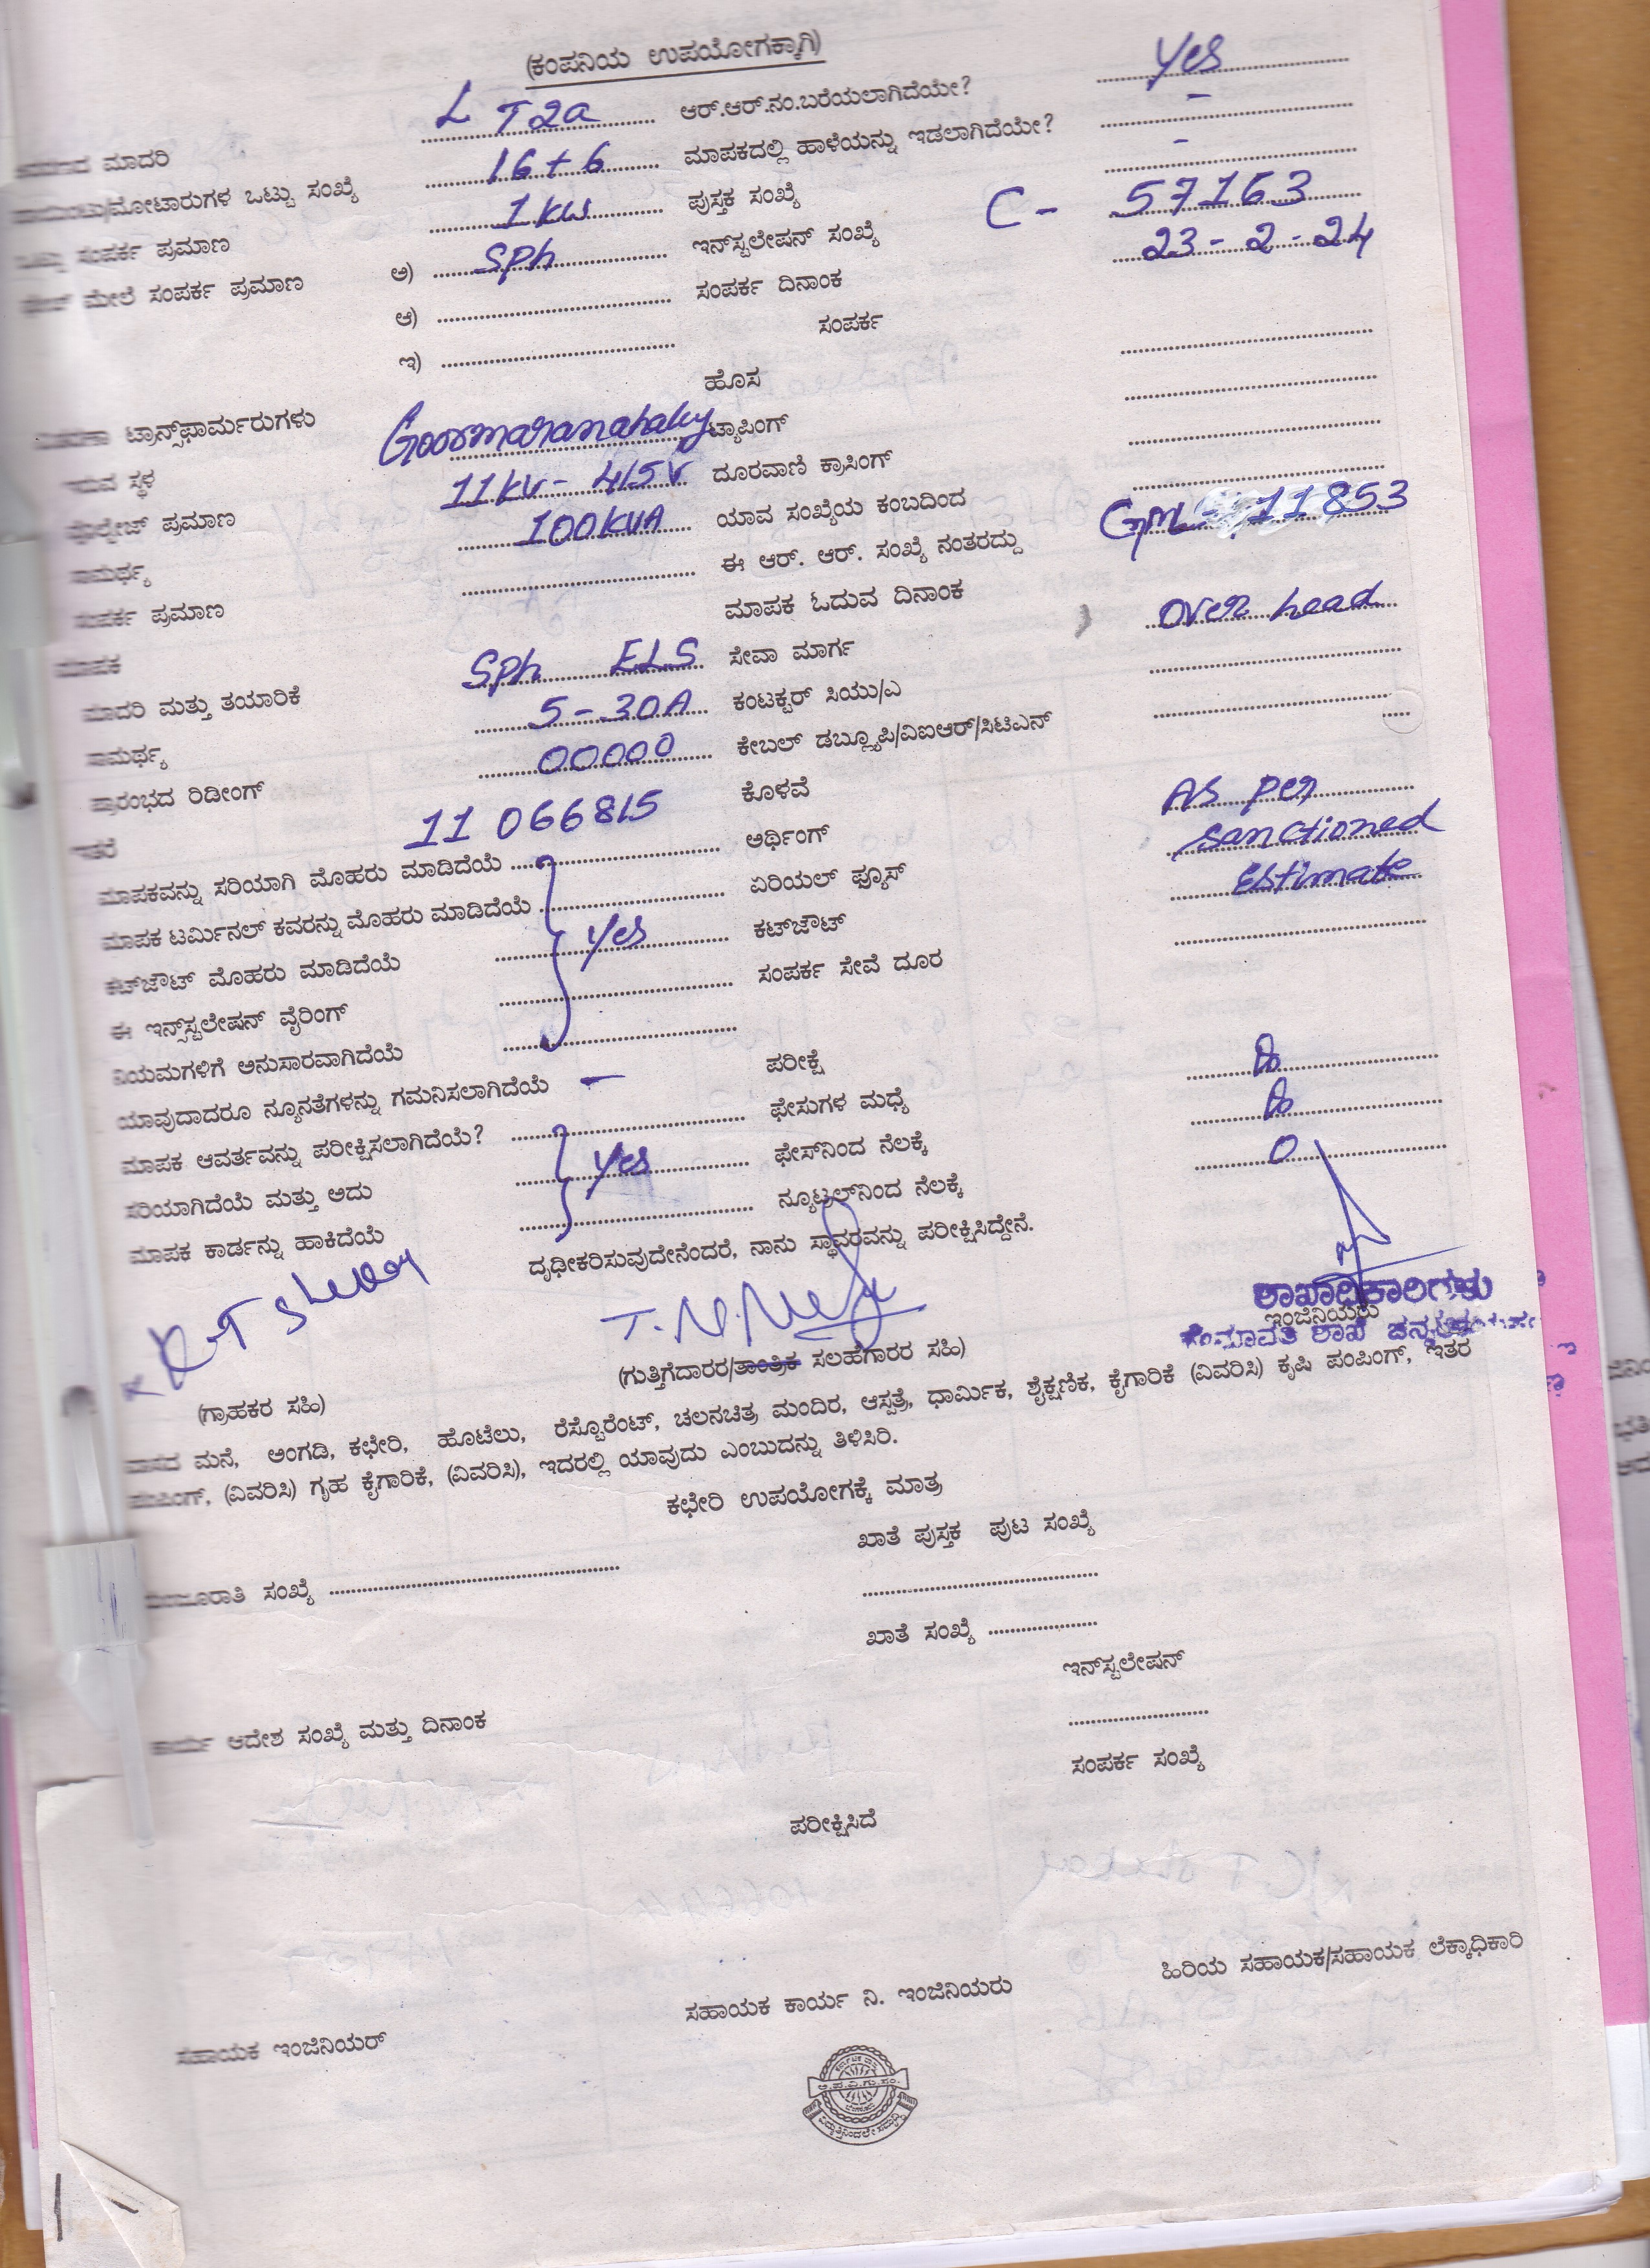 (ಕಂಪನಿಯ ಉಪಯೋಗಕ್ಕಾಗಿ)
ಮಾದರಿ LT2a ಆರ್.ಆರ್.ನಂ.ಬರೆಯಲಾಗಿದೆಯೇ? Yes
ಮೋಟಾರುಗಳ ಒಟ್ಟು ಸಂಖ್ಯೆ 16+6 ಮಾಪಕದಲ್ಲಿ ಹಾಳೆಯನ್ನು ಇಡಲಾಗಿದೆಯೇ? -
ಒಟ್ಟು ಸಂಪರ್ಕ ಪ್ರಮಾಣ 1KW ಪುಸ್ತಕ ಸಂಖ್ಯೆ -
ಮೇಲೆ ಸಂಪರ್ಕ ಪ್ರಮಾಣ ಅ) Sph ಇನ್‌ಸ್ಟಲೇಷನ್ ಸಂಖ್ಯೆ C - 57163
ಆ) ಸಂಪರ್ಕ ದಿನಾಂಕ 23-2-24
ಇ) ಸಂಪರ್ಕ
ಹೊಸ
ಟ್ರಾನ್ಸ್‌ಫಾರ್ಮರುಗಳು
ಇರುವ ಸ್ಥಳ Gooomaranahally ಟ್ಯಾಪಿಂಗ್
ವೋಲ್ಟೇಜ್ ಪ್ರಮಾಣ 11KV - 415V ದೂರವಾಣಿ ಕ್ರಾಸಿಂಗ್
ಸಾಮರ್ಥ್ಯ 100KVA ಯಾವ ಸಂಖ್ಯೆಯ ಕಂಬದಿಂದ
ಸಂಪರ್ಕ ಪ್ರಮಾಣ ಈ ಆರ್. ಆರ್. ಸಂಖ್ಯೆ ನಂತರದ್ದು GML 11853
ಮಾಪಕ ಮಾಪಕ ಓದುವ ದಿನಾಂಕ
ಮಾದರಿ ಮತ್ತು ತಯಾರಿಕೆ Sph ELS ಸೇವಾ ಮಾರ್ಗ Over head
ಸಾಮರ್ಥ್ಯ 5-30A ಕಂಟಕ್ಟರ್ ಸಿಯು/ಎ
ಪ್ರಾರಂಭದ ರಿಡೀಂಗ್ 00000 ಕೇಬಲ್ ಡಬ್ಲ್ಯೂಪಿ/ವಿಐಆರ್/ಸಿಟಿಎನ್
ಇತರೆ 11 066815 ಕೊಳವೆ
ಮಾಪಕವನ್ನು ಸರಿಯಾಗಿ ಮೊಹರು ಮಾಡಿದೆಯೆ ಅರ್ಥಿಂಗ್ As per
ಮಾಪಕ ಟರ್ಮಿನಲ್ ಕವರನ್ನು ಮೊಹರು ಮಾಡಿದೆಯೆ ಏರಿಯಲ್ ಫ್ಯೂಸ್ sanctioned
ಕಟ್‌ಜೌಟ್ ಮೊಹರು ಮಾಡಿದೆಯೆ Yes ಕಟ್‌ಜೌಟ್ Estimate
ಈ ಇನ್‌ಸ್ಟಲೇಷನ್ ವೈರಿಂಗ್ ಸಂಪರ್ಕ ಸೇವೆ ದೂರ
ನಿಯಮಗಳಿಗೆ ಅನುಸಾರವಾಗಿದೆಯೆ
ಯಾವುದಾದರೂ ನ್ಯೂನತೆಗಳನ್ನು ಗಮನಿಸಲಾಗಿದೆಯೆ - ಪರೀಕ್ಷೆ
ಮಾಪಕ ಆವರ್ತವನ್ನು ಪರೀಕ್ಷಿಸಲಾಗಿದೆಯೆ? ಫೇಸುಗಳ ಮಧ್ಯೆ
ಸರಿಯಾಗಿದೆಯೆ ಮತ್ತು ಅದು Yes ಫೇಸ್‌ನಿಂದ ನೆಲಕ್ಕೆ
ಮಾಪಕ ಕಾರ್ಡನ್ನು ಹಾಕಿದೆಯೆ ನ್ಯೂಟ್ರಲ್‌ನಿಂದ ನೆಲಕ್ಕೆ 0
ದೃಢೀಕರಿಸುವುದೇನೆಂದರೆ, ನಾನು ಸ್ಥಾವರವನ್ನು ಪರೀಕ್ಷಿಸಿದ್ದೇನೆ.
ಶಾಖಾಧಿಕಾರಿಗಳು
ಇಂಜಿನಿಯರು
ಶಾಖೆ
(ಗ್ರಾಹಕರ ಸಹಿ) (ಗುತ್ತಿಗೆದಾರರ/ತಾಂತ್ರಿಕ ಸಲಹೆಗಾರರ ಸಹಿ)
ವಾಸದ ಮನೆ, ಅಂಗಡಿ, ಕಛೇರಿ, ಹೊಟೆಲು, ರೆಸ್ಟೊರೆಂಟ್, ಚಲನಚಿತ್ರ ಮಂದಿರ, ಆಸ್ಪತ್ರೆ, ಧಾರ್ಮಿಕ, ಶೈಕ್ಷಣಿಕ, ಕೈಗಾರಿಕೆ (ವಿವರಿಸಿ) ಕೃಷಿ ಪಂಪಿಂಗ್, ಇತರ
ಪಂಪಿಂಗ್, (ವಿವರಿಸಿ) ಗೃಹ ಕೈಗಾರಿಕೆ, (ವಿವರಿಸಿ), ಇದರಲ್ಲಿ ಯಾವುದು ಎಂಬುದನ್ನು ತಿಳಿಸಿರಿ.
ಕಛೇರಿ ಉಪಯೋಗಕ್ಕೆ ಮಾತ್ರ
ಮಂಜೂರಾತಿ ಸಂಖ್ಯೆ ಖಾತೆ ಪುಸ್ತಕ ಪುಟ ಸಂಖ್ಯೆ
ಖಾತೆ ಸಂಖ್ಯೆ
ಇನ್‌ಸ್ಟಲೇಷನ್
ಕಾರ್ಯ ಆದೇಶ ಸಂಖ್ಯೆ ಮತ್ತು ದಿನಾಂಕ
ಸಂಪರ್ಕ ಸಂಖ್ಯೆ
ಪರೀಕ್ಷಿಸಿದೆ
ಸಹಾಯಕ ಇಂಜಿನಿಯರ್ ಸಹಾಯಕ ಕಾರ್ಯ ನಿ. ಇಂಜಿನಿಯರು ಹಿರಿಯ ಸಹಾಯಕ/ಸಹಾಯಕ ಲೆಕ್ಕಾಧಿಕಾರಿ